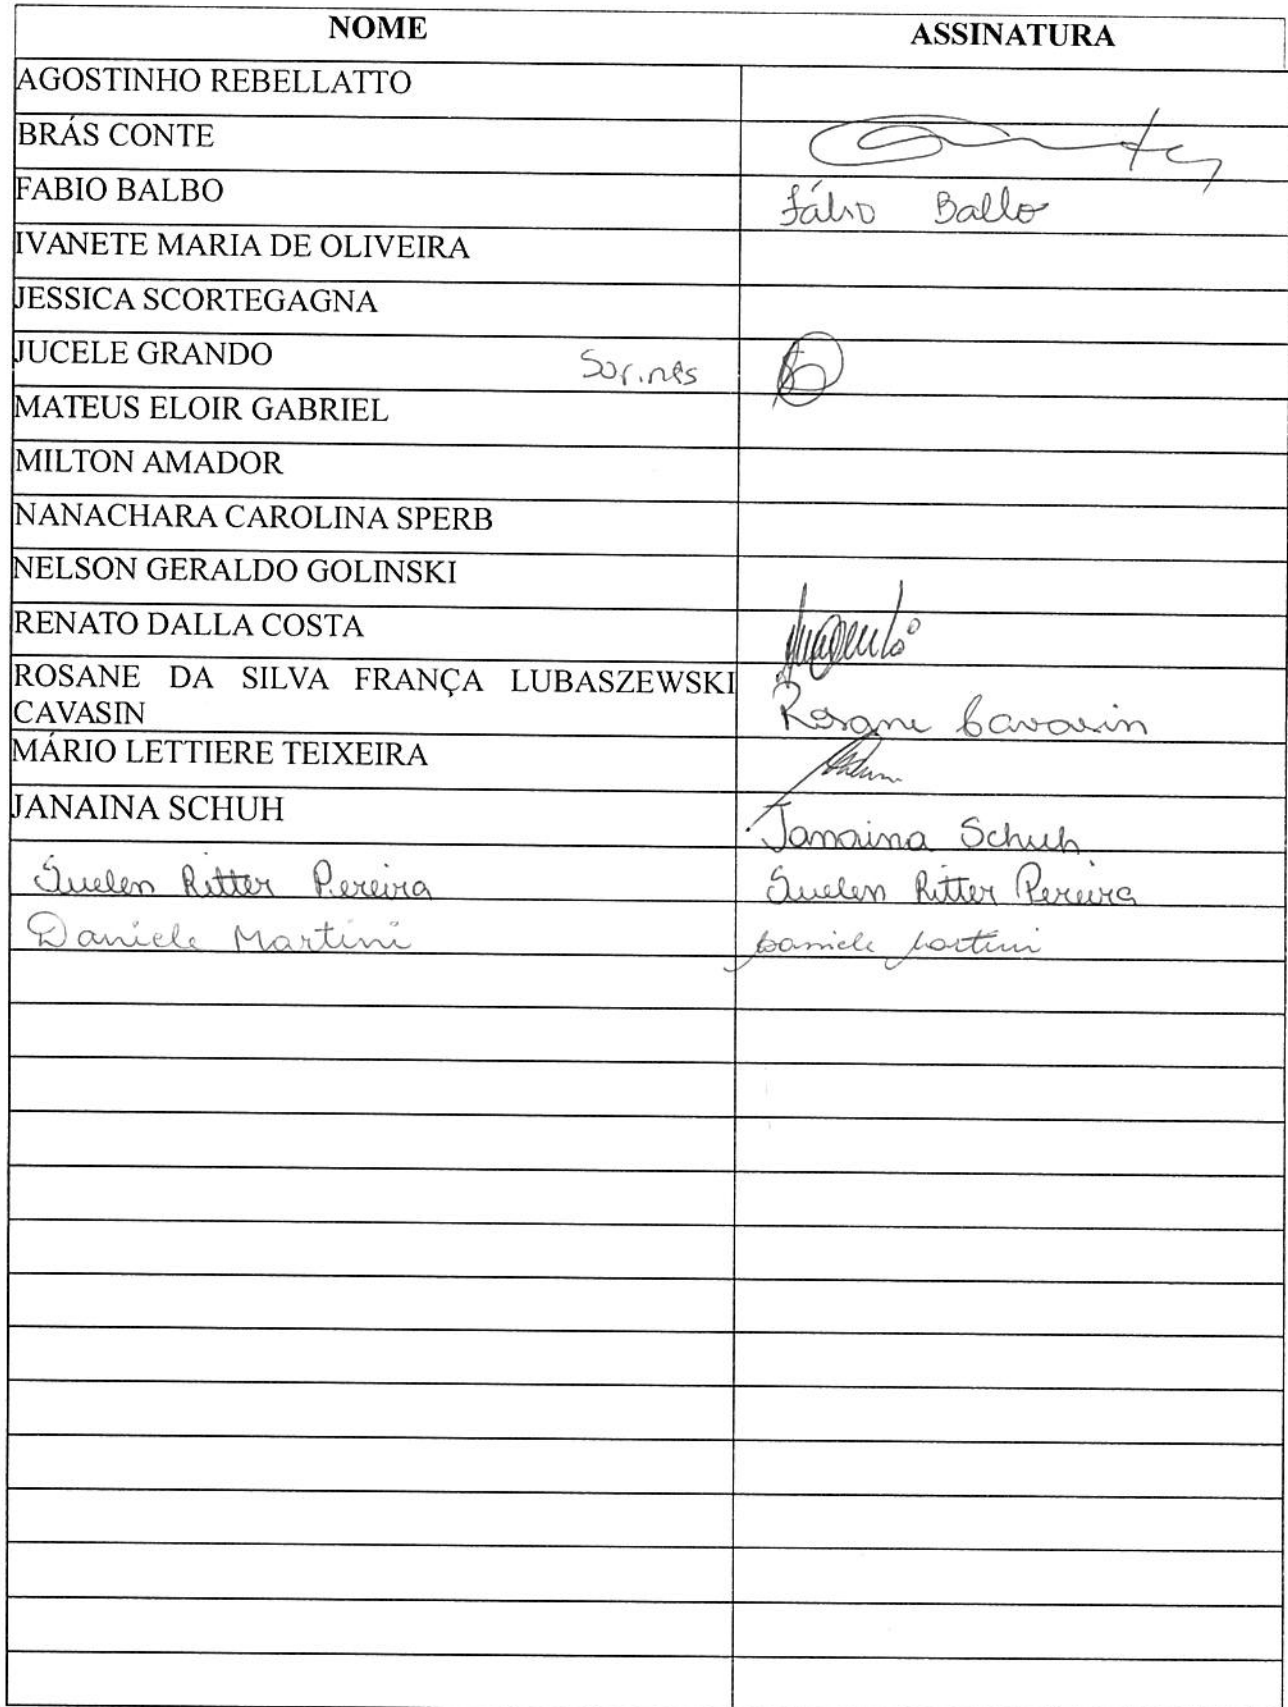 NOME ASSINATURA
AGOSTINHO REBELLATTO
BRÁS CONTE
FABIO BALBO Fábio Balbo
IVANETE MARIA DE OLIVEIRA
JESSICA SCORTEGAGNA
JUCELE GRANDO
MATEUS ELOIR GABRIEL
MILTON AMADOR
NANACHARA CAROLINA SPERB
NELSON GERALDO GOLINSKI
RENATO DALLA COSTA
ROSANE DA SILVA FRANÇA LUBASZEWSKI
CAVASIN Rosane Cavasin
MÁRIO LETTIERE TEIXEIRA
JANAINA SCHUH Janaina Schuh
Suelen Ritter Pereira Suelen Ritter Pereira
Daniele Martini Daniele Martini